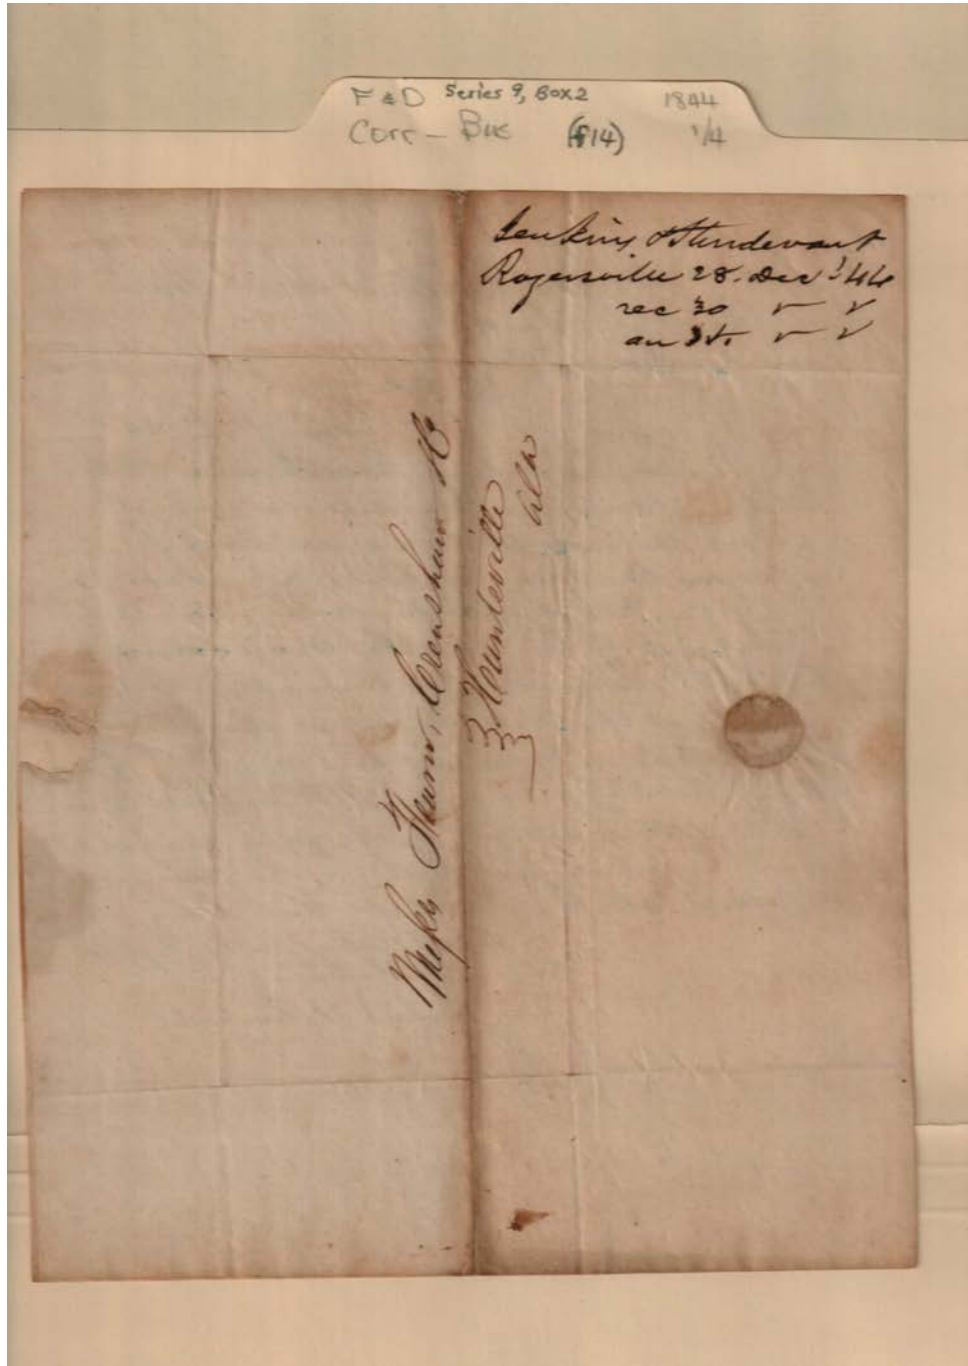 F & D Series 9, Box 2 1844
Corr - Bus (f14) 1/4
Jenkins & Sturdevant
Rogersville 28. Dec '44
rec 30
an
Messrs Fearn, Crenshaw & Co
Huntsville
Ala